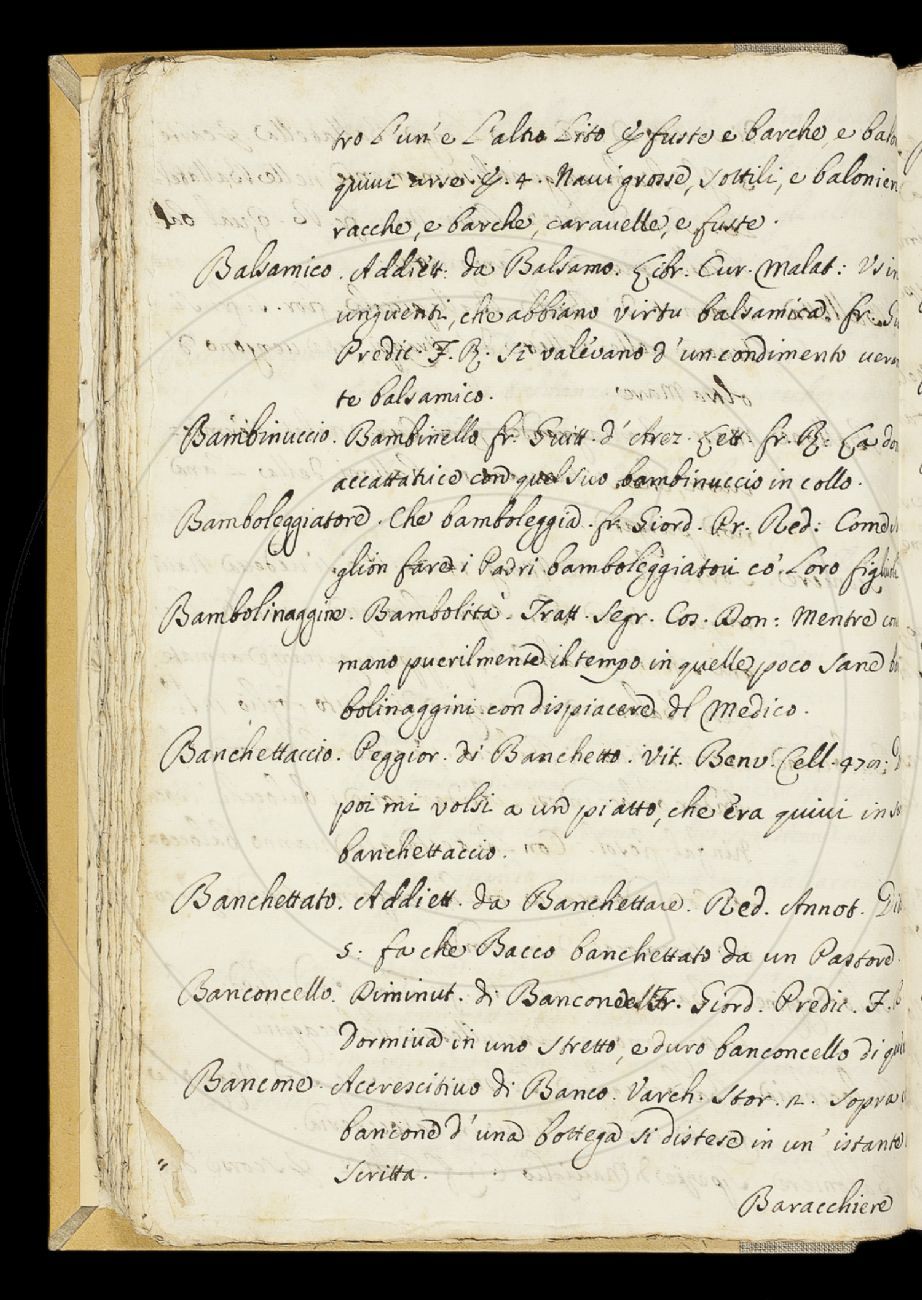 tro l'un' e l'altro lito p fuste e barche, e
quivi arse. p. 4. Navi grosse, sottili, e
racche, e barche, caravelle, e fuste.
Balsamico. Addiett. da Balsamo. Libr. Cur. Malat:
unguenti, che abbiano virtu balsamica. fr.
Predic. F. R. Si valevano d'un condimento
te balsamico.
Bambinuccio. Bambinello fr. Guitt. d'Arez. Lett. fr. R. La
accattatrice con quel suo bambinuccio in collo.
Bamboleggiatore. Che bamboleggia. fr. Giord. Pr. Red: Come
glion fare i Padri bamboleggiatori co' loro
Bambolinaggine. Bambolità. Tratt. Segr. Cos. Don: Mentre
mano puerilmente il tempo in quelle poco sane
bolinaggini con dispiacere del Medico.
Banchettaccio. Peggior. di Banchetto. Vit. Benv. Cell.
poi mi volsi a un piatto, che era quivi in
banchettaccio.
Banchettato. Addiett. da Banchettare. Red. Annot.
s: fa che Bacco banchettato da un Pastore
Banconcello. Diminut. di Bancone. Fr. Giord. Predic. F.
Dormiva in uno stretto, e duro banconcello di
Bancone. Accrescitivo di Banco. Varch. Stor. 2. Sopra
bancone d'una bottega si distese in un' istante
scritta.
Baracchiere